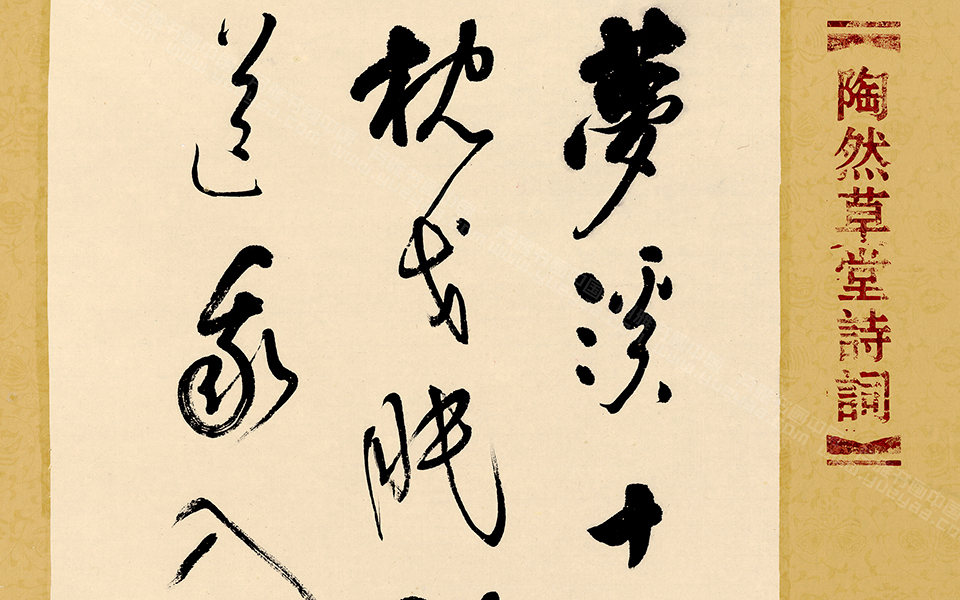 【陶然草堂詩詞】
夢溪十
枕戈眠
送我入